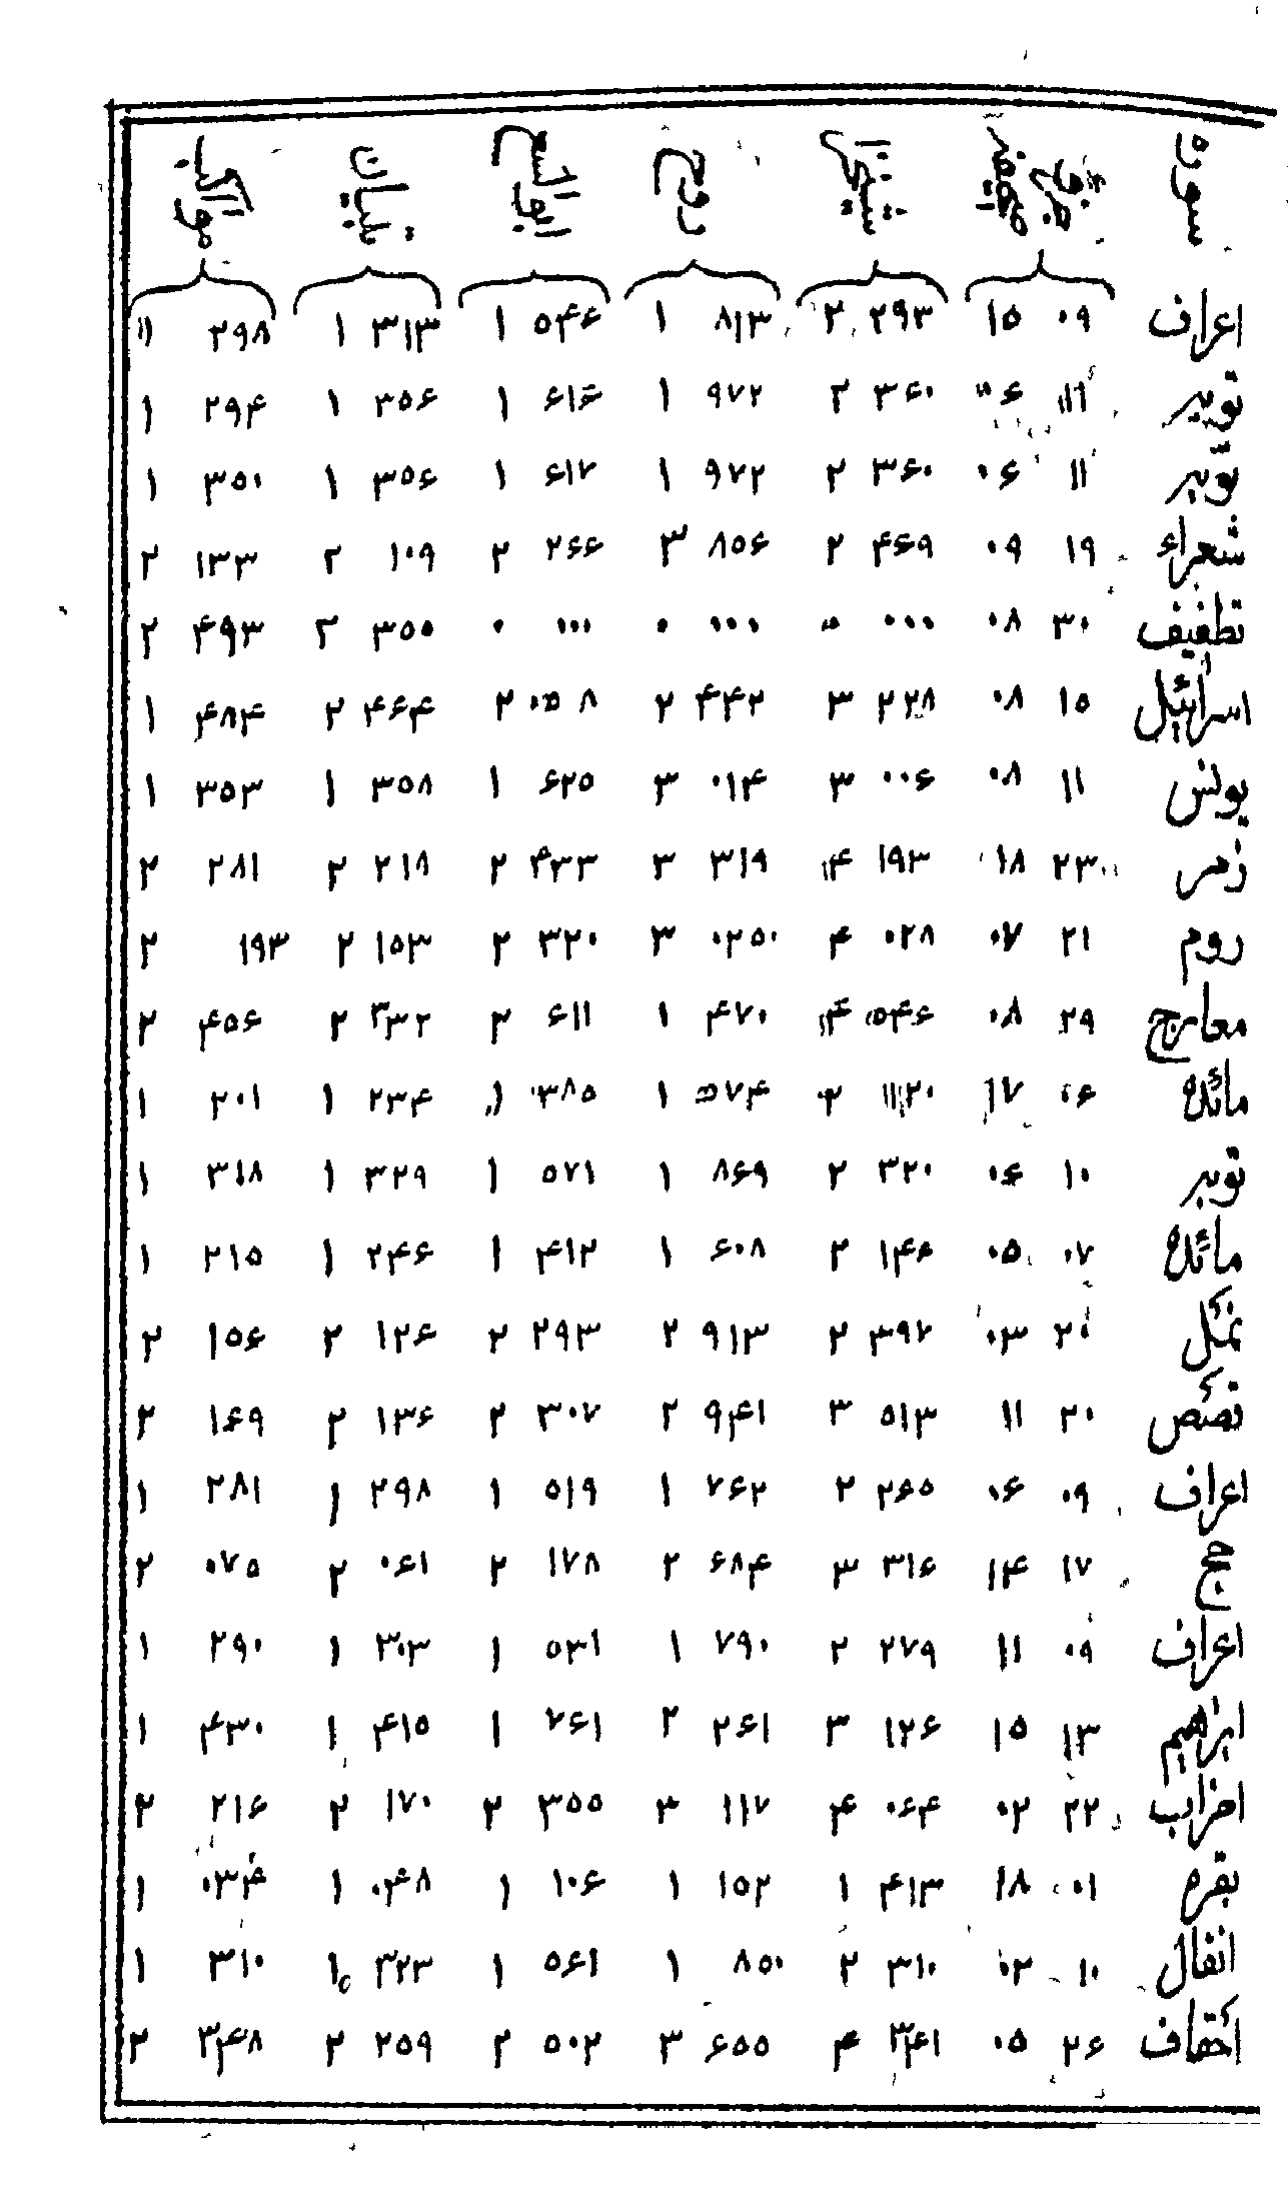 سوره جزو صفحه شیخ زاده روح ابو السعود تبیان مواکب
اعراف ۰۹ ۱۵ ۲۹۳ ۲ ۸۱۳ ۱ ۵۴۶ ۱ ۳۱۳ ۱ ۲۹۸ ۱
توبه ۱۱ ۰۶ ۳۶۰ ۲ ۹۷۲ ۱ ۶۱۶ ۱ ۳۵۶ ۱ ۲۹۴ ۱
توبه ۱۱ ۰۶ ۳۶۰ ۲ ۹۷۲ ۱ ۶۱۷ ۱ ۳۵۶ ۱ ۳۵۰ ۱
شعراء ۱۹ ۰۹ ۴۶۹ ۲ ۸۵۶ ۳ ۲۶۶ ۲ ۱۰۹ ۲ ۱۳۳ ۲
تطفیف ۳۰ ۰۸ ۰۰۰ ۰ ۰۰۰ ۰ ۰۰۰ ۰ ۳۵۵ ۲ ۴۹۳ ۲
اسرائیل ۱۵ ۰۸ ۲۲۸ ۳ ۴۴۲ ۲ ۰۰۸ ۲ ۴۶۴ ۲ ۴۸۴ ۱
یونس ۱۱ ۰۸ ۰۰۶ ۳ ۰۱۴ ۳ ۶۲۵ ۱ ۳۵۸ ۱ ۳۵۳ ۱
زمر ۲۳ ۱۸ ۱۹۳ ۴ ۳۱۹ ۳ ۴۳۳ ۲ ۲۱۸ ۲ ۲۸۱ ۲
روم ۲۱ ۰۷ ۰۲۸ ۴ ۰۲۵۰ ۳ ۳۲۰ ۲ ۱۵۳ ۲ ۱۹۳ ۲
معارج ۲۹ ۰۸ ۵۴۶ ۴ ۴۷۰ ۱ ۶۱۱ ۲ ۳۳۲ ۲ ۴۵۶ ۲
مائده ۰۶ ۱۷ ۱۲۰ ۲ ۵۷۴ ۱ ۳۸۵ ۱ ۲۳۴ ۱ ۲۰۱ ۱
توبه ۱۰ ۰۶ ۳۲۰ ۲ ۸۶۹ ۱ ۵۷۱ ۱ ۳۲۹ ۱ ۳۱۸ ۱
مائده ۰۷ ۰۵ ۱۴۶ ۲ ۶۰۸ ۱ ۴۱۲ ۱ ۲۴۶ ۱ ۲۱۵ ۱
نمل ۲۰ ۰۳ ۳۹۷ ۲ ۹۱۳ ۲ ۲۹۳ ۲ ۱۲۶ ۲ ۱۵۶ ۲
قصص ۲۰ ۱۱ ۵۱۳ ۳ ۹۴۱ ۲ ۳۰۷ ۲ ۱۳۶ ۲ ۱۶۹ ۲
اعراف ۰۹ ۰۶ ۲۶۵ ۲ ۷۶۲ ۱ ۵۱۹ ۱ ۲۹۸ ۱ ۲۸۱ ۱
حج ۱۷ ۱۴ ۳۱۶ ۳ ۶۸۴ ۲ ۱۷۸ ۲ ۰۶۱ ۲ ۰۷۵ ۲
اعراف ۰۹ ۱۱ ۲۷۹ ۲ ۷۹۰ ۱ ۵۳۱ ۱ ۳۰۳ ۱ ۲۹۰ ۱
ابراهیم ۱۳ ۱۵ ۱۲۶ ۳ ۲۶۱ ۲ ۷۶۱ ۱ ۴۱۵ ۱ ۴۳۰ ۱
احزاب ۲۲ ۰۲ ۰۶۴ ۴ ۱۱۷ ۳ ۳۵۵ ۲ ۱۷۰ ۲ ۲۱۶ ۲
بقره ۰۱ ۱۸ ۴۱۳ ۱ ۱۵۲ ۱ ۱۰۶ ۱ ۰۴۸ ۱ ۰۳۴ ۱
انفال ۱۰ ۰۲ ۳۱۰ ۲ ۸۵۰ ۱ ۵۶۱ ۱ ۳۲۳ ۱ ۳۱۰ ۱
احقاف ۲۶ ۰۵ ۳۴۱ ۴ ۶۵۵ ۳ ۵۰۲ ۲ ۲۵۹ ۲ ۳۴۸ ۲